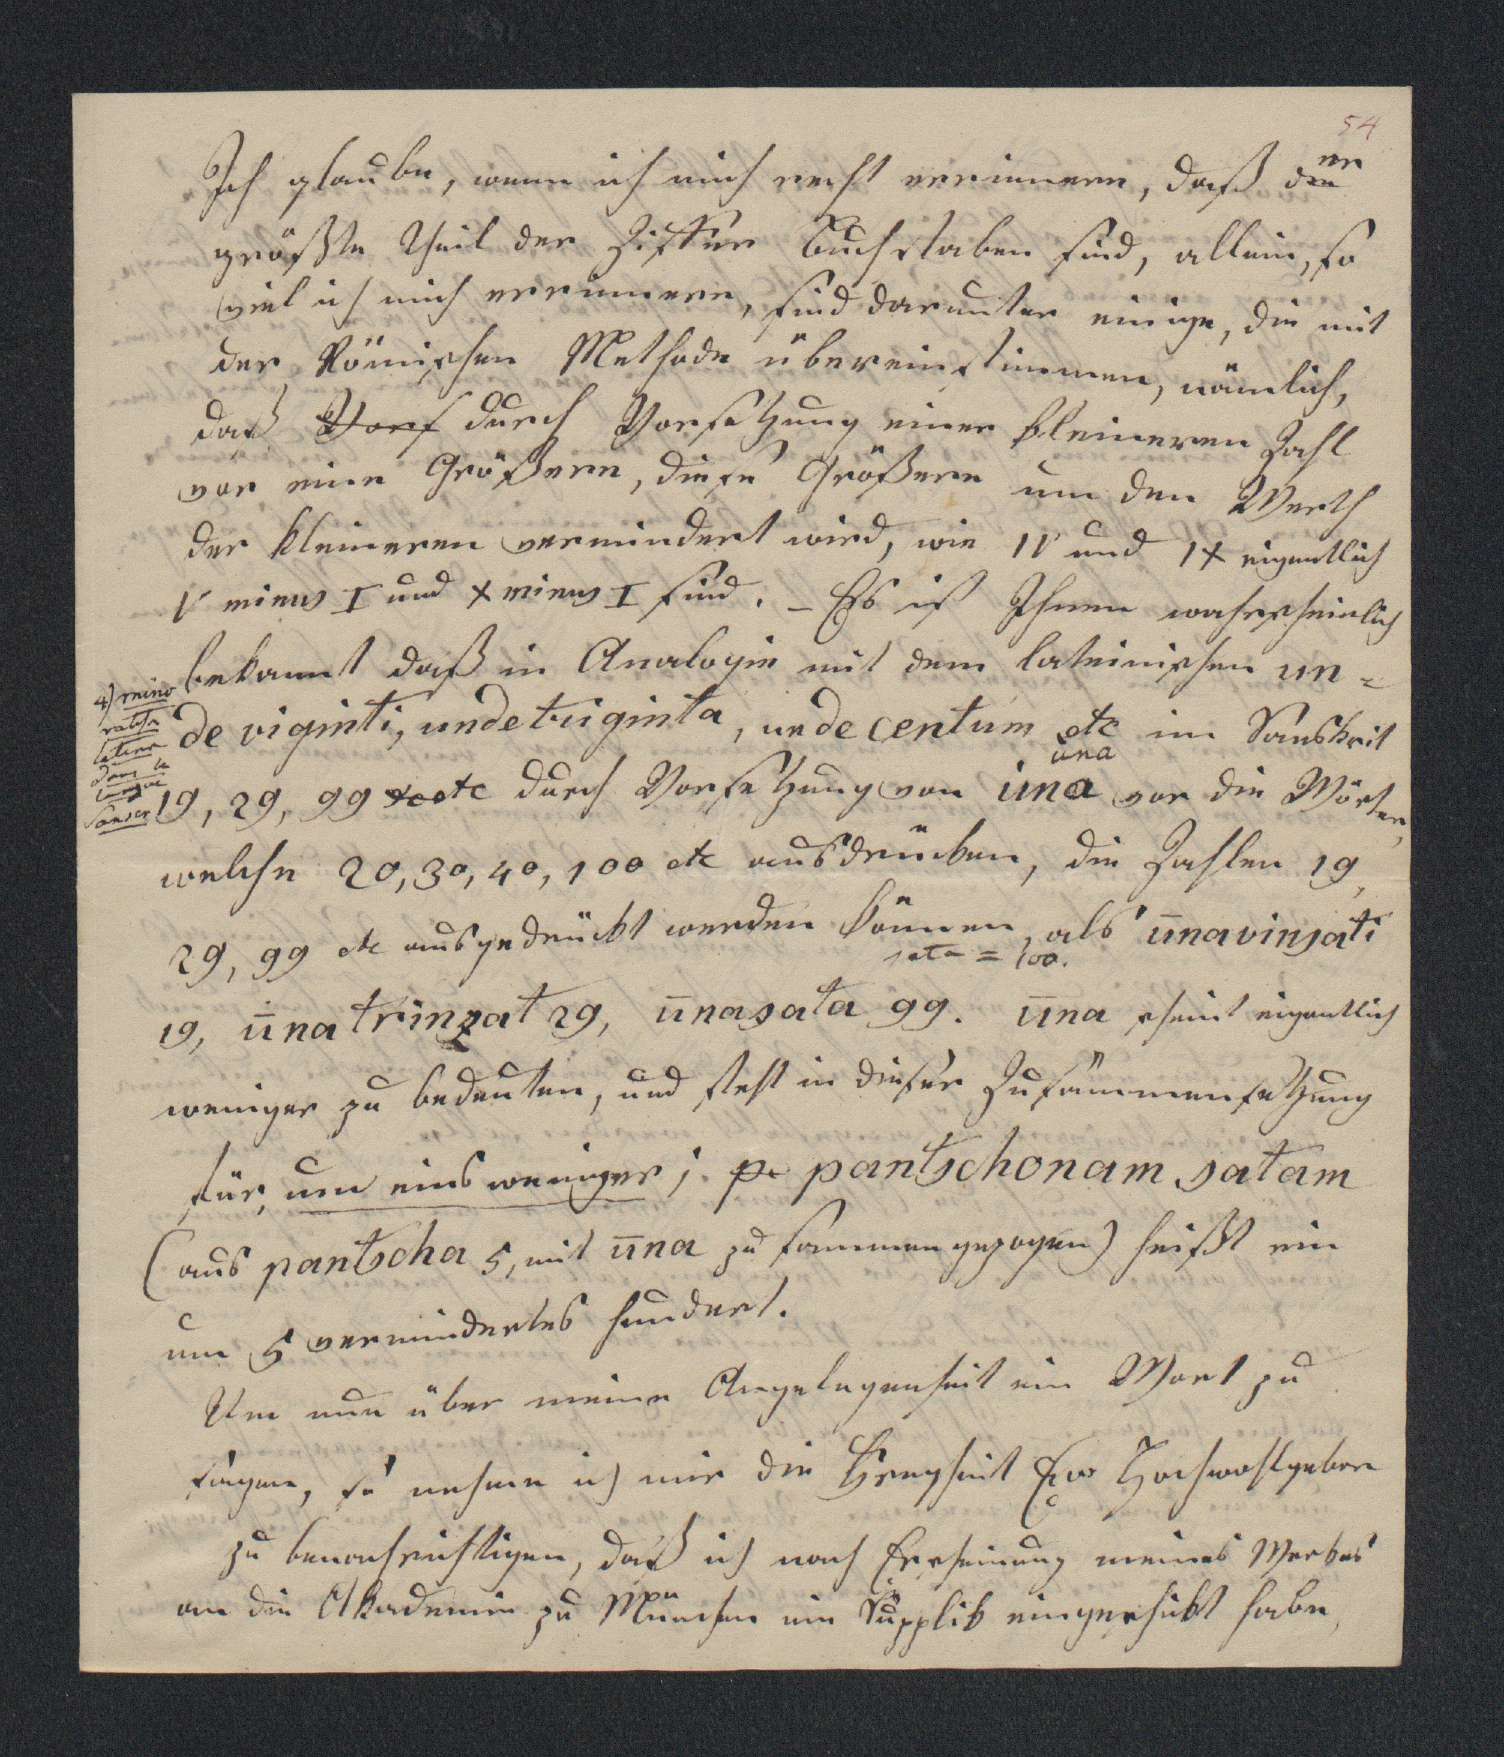 54
Ich glaube, wenn ich mich recht erinnere, daß der
größte Theil der Ziffer Buchstaben sind, allein, so
viel ich mich errinnere, sind darunter einige, die mit
der Römischen Methode übereinstimmen, nämlich,
daß Vors durch Vorsetzung einer kleineren Zahl
vor eine Größere, diese Größere um den Werth
der kleineren vermindert wird, wie IV und IX eigentlich
V minus I und X minus I sind. – Es ist Ihnen wahrscheinlich
bekannt daß in Analogie mit dem lateinischen un=
de viginti, undetriginta, undecentum etc im Sanskrit
una
19, 29, 99 etc durch Vorsetzung von ūna vor die Wörter,
welche 20, 30, 40, 100 etc ausdrücken, die Zahlen 19,
29, 99 etc ausgedrückt werden können, als ūnavinsati
sata = 100.
19, ūnatrinsat 29, ūnasata 99. ūna scheint eigentlich
weniger zu bedeuten, und steht in dieser Zusammensetzung
für, um eins weniger; pe pantschonam satam
(aus pantscha 5, mit ūna zusammengezogen) heißt ein
um 5 vermindertes hundert.
Um nun über meine Angelegenheit ein Wort zu
sagen, so nehme ich mir die Freyheit Ew Hochwohlgebore
zu benachrichtigen, daß ich nach Erscheinung meines Werkes
an die Akademie zu München ein Supplik eingeschikt habe,
4) mino
ratifs
latins
dans la
langue
Sanscr